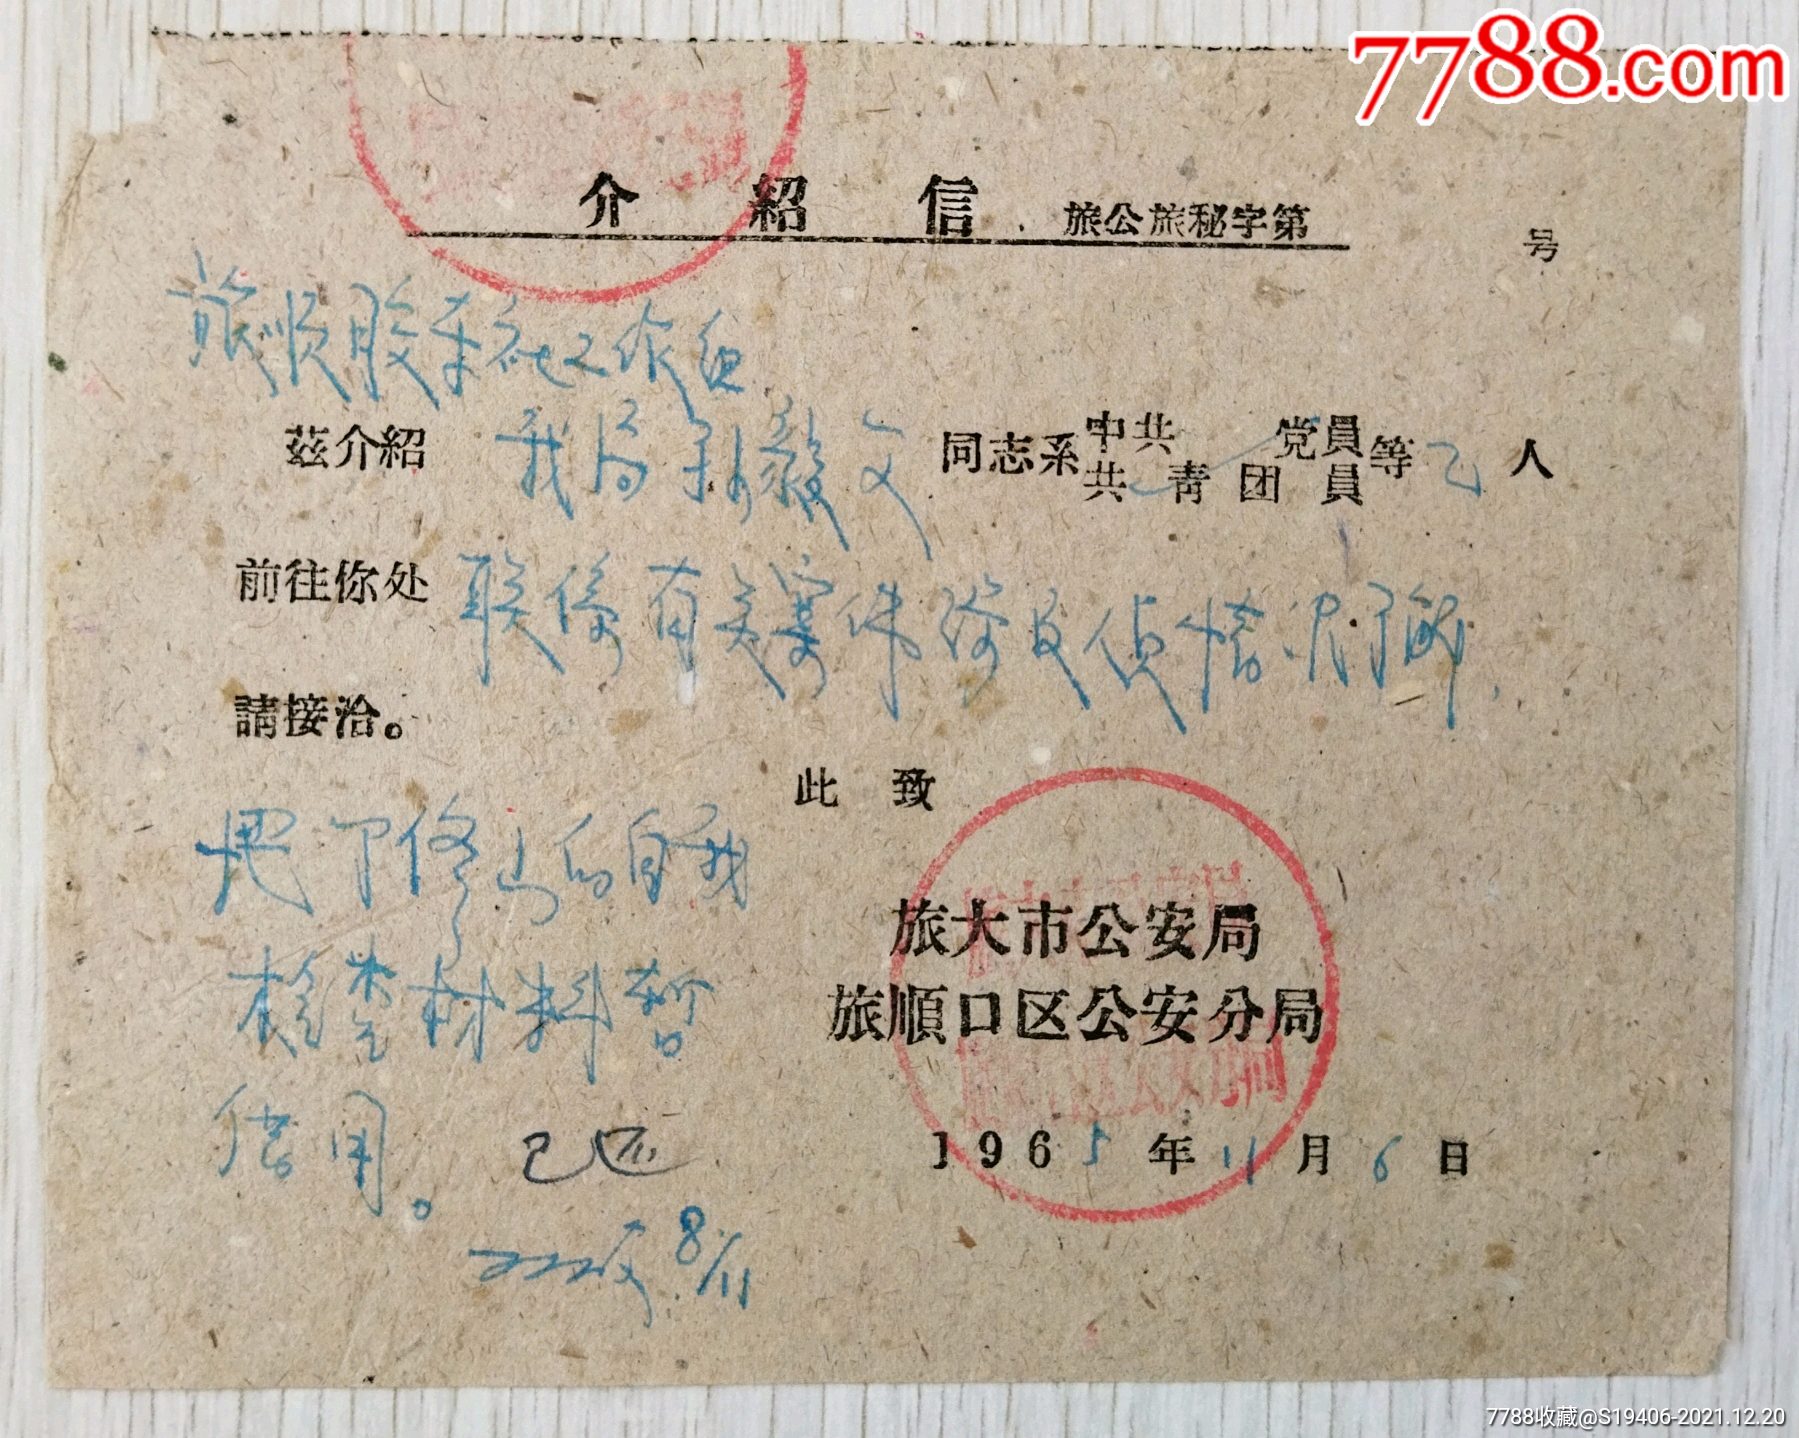 7788.com
介紹信 旅公旅秘字第 号
旅顺胶东社工作组
茲介紹 我局 毅文 同志系 中共党員 共青团員 等 乙 人
前往你处 联係有关案件 侦情况 了解
請接洽。
此致
把丁修山的自我
检查材料暂
借用。 已还
8/11
旅大市公安局
旅順口区公安分局
1965年11月6日
7788收藏@S19406-2021.12.20